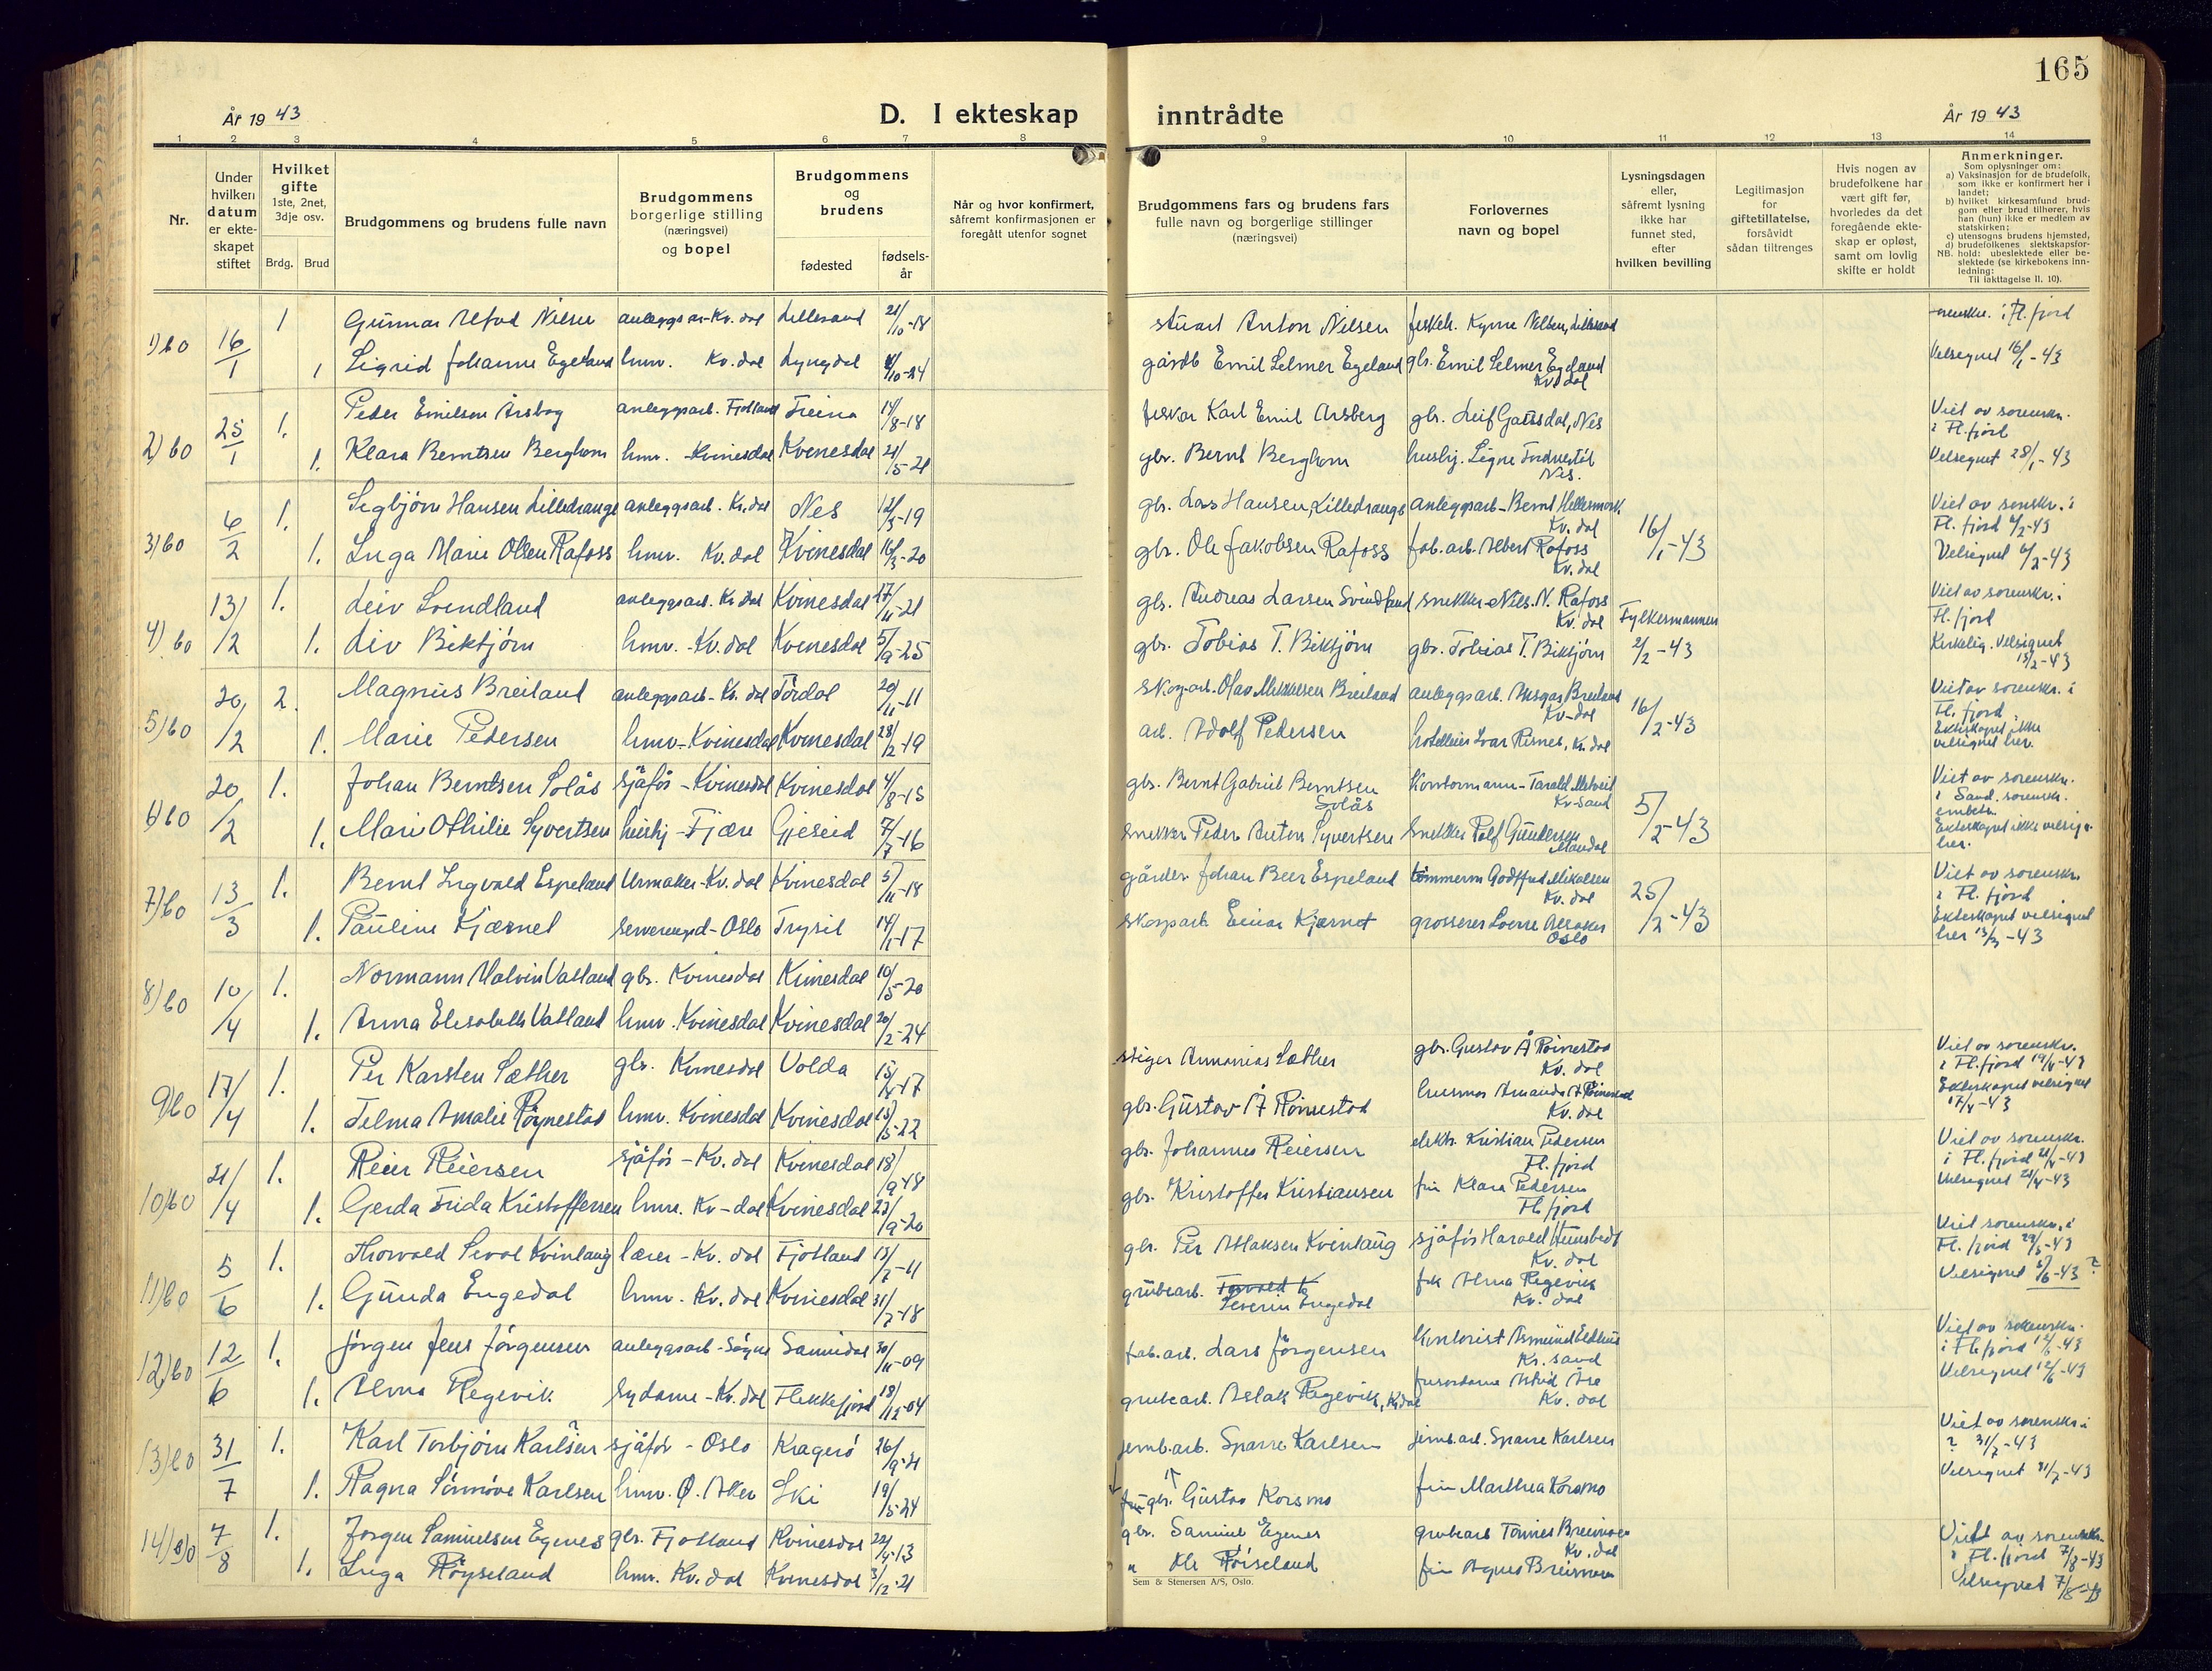 165
År 1943
D. I ekteskap inntrådte
År 1943
1 2 3 4 5 6 7 8 9 10 11 12 13 14
Nr.
Under hvilken datum er ekte-skapet stiftet
Hvilket gifte 1ste, 2net, 3dje osv.
Brdg. Brud
Brudgommens og brudens fulle navn
Brudgommens borgerlige stilling (næringsvei) og bopel
Brudgommens og brudens
fødested
fødsels-år
Når og hvor konfirmert, såfremt konfirmasjonen er foregått utenfor sognet
Brudgommens fars og brudens fars fulle navn og borgerlige stillinger (næringsvei)
Forlovernes navn og bopel
Lysningsdagen eller, såfremt lysning ikke har funnet sted, efter hvilken bevilling
Legitimasjon for giftetillatelse, forsåvidt sådan tiltrenges
Hvis nogen av brudefolkene har vært gift før, hvorledes da det foregående ekte-skap er opløst, samt om lovlig skifte er holdt
Anmerkninger.
Som oplysninger om:
a) Vaksinasjon for de brudefolk, som ikke er konfirmert her i landet;
b) hvilket kirkesamfund brud-gom eller brud tilhører, hvis han (hun) ikke er medlem av statskirken;
c) utensogns brudens hjemsted,
d) brudefolkenes slektskapsfor-hold: ubeslektede eller be-slektede (se kirkebokens inn-ledning:
NB.
Til iakttagelse II. 10).
1) 60 16/1 1 Gunnar Alfred Nilsen anleggsar-Kv.dal Lillesand 21/10-18 stuart Anton Nilsen Lillesand sorenskr. i Fl.fjord
1 Sigrid Johanne Egeland hmv. Kv.dal Lyngdal gårdb Emil Selmer Egeland gbr. Emil Selmer Egeland Kv.dal Velsignet 16/1-43
2) 60 25/1 1. Peder Emilsen Årsbog anleggsarb. Fjotland 14/8-18 fisker Karl Emil Arsberg gbr. Leif Nes Viet av sorenskr. i Fl.fjord
1. Klara Berntsen Berghom hmv. -Kvinesdal Kvinesdal 21/5-21 gbr. Bernt Berghom Signe Nes. Velsignet 28/1-43
3) 60 6/2 1. Segbjørn Hansen Lilledrange anleggsarb. Kv.dal Nes 12/3-19 gbr. Lars Hansen Lilledrange anleggsarb- Bernt Hellesmark Kv.dal 16/1-43 Viet av sorenskr. i Fl.fjord 6/2-43
1. Inga Marie Olsen Rafoss hmv. Kv.dal Kvinesdal 16/3-20 gbr. Ole Jakobsen Rafoss fab.arb. Albert Rafoss Kv.dal Velsignet 6/2-43
4) 60 13/2 1. Leiv Svendland anleggsarb. Kv.dal Kvinesdal 17/11-21 gbr. Andreas Larsen Svindland snekker Nils. N. Rafoss Kv.dal Fylkesmannen 2/2-43 Viet av sorenskr. i Fl.fjord
1. Liv Birktjørn hmv. -Kv.dal Kvinesdal 5/9-25 gbr. Tobias T. Birktjørn gbr. Tobias T. Birktjørn Kirkelig. Velsignet 13/2-43
5) 60 20/2 2. Magnus Breiland anleggsarb- Kv.dal Tørdal 20/11-11 skog.arb. Olav Mikkelsen Breiland anleggsarb. Breiland Kv-dal 16/2-43 Viet av sorenskr. i Fl.fjord.
1. Marie Pedersen hmv-Kvinesdal Kvinesdal 28/12-19 arb. Adolf Pedersen Ivar Risnes, Kv.dal Ekteskapet ikke velsignet her.
6) 60 20/2 1. Johan Berntsen Solås sjåfør -Kvinesdal Kvinesdal 4/8-15 gbr. Bernt Gabriel Berntsen Solås Kontormann- Kr-sand 5/2-43 Viet av sorenskr. i Sand. sorenskr. embete.
1. Mari Othilie Syvertsen hushj -Fjære Gjeseid 7/7-16 snekker Peder Anton Syvertsen snekker Rolf Gundersen Mandal Ekteskapet ikke velsign. her.
7) 60 13/3 1. Bernt Ingvald Espeland Urmaker-Kv.dal Kvinesdal 5/11-18 gårdbr Johan Beer Espeland tømmerm Godtfred Mikalsen Kv.dal 25/2-43 Viet av sorenskr. i Fl.fjord
1. Pauline Kjærnet -Oslo Trysil 14/1-17 skogsarb Einar Kjærnet grosserer Sverre Oslo Ekteskapet velsignet her 13/3-43
8) 60 10/4 1. Normann Malvin Vatland gbr. Kvinesdal Kvinesdal 10/5-20
1. Anna Elisabeth Vatland hmv. Kvinesdal Kvinesdal 20/2-24
9) 60 17/4 1. Per Karsten Sæther gbr. Kvinesdal Volda 15/4-17 stiger Ammonias Sæther gbr. Gustav Å Røinestad Kv.dal Viet av sorenskr. i Fl.fjord 19/4-43
1. Telma Amalie Røynestad hmv. Kvinesdal Kvinesdal 13/3-22 gbr. Gustav Å Røinestad husmor Amanda A Røinestad Kv.dal Ekteskapet velsignet 17/4-43
10) 60 21/4 1. Reier Reiersen sjåfør -Kv.dal Kvinesdal 18/9-18 gbr. Johannes Reiersen elektr. Kristian Pedersen Fl.fjord Viet av sorenskr. i Fl.fjord 21/4-43
1. Gerda Frida Kristoffersen hmv. Kv-dal Kvinesdal 23/9-20 gbr. Kristoffer Kristiansen fru Klara Pedersen Fl.fjord Velsignet 21/4-43
11) 60 5/6 1. Thorvald Seval Kvinlaug lærer -Kv.dal Fjotland 13/7-11 gbr. Per Aslaksen Kvinlaug sjåfør Harald Hunsbedt Kv.dal Viet sorenskr. i Fl.fjord 29/5-43
1. Gunda Engedal hmv. Kv.dal Kvinesdal 31/7-18 grubearb. Torvald K Severin Engedal frk Alma Regevik Kv.dal Velsignet 5/6-43 ?
12) 60 12/6 1. Jørgen Jens Jørgensen anleggsarb -Søgne Sannidal 30/11-09 fab.arb. Lars Jørgensen Kontorist Asmund Kr.sand Viet av sorenskr. i Fl.fjord 12/6-43
1. Alma Regevik sydame -Kv.dal Flekkefjord 18/12-04 grubearb. Aslak Regevik, Kv.dal Astrid Kv.dal Velsignet 12/6-43
13) 60 31/7 1. Karl Torbjørn Karlsen sjåfør - Oslo Kragerø 26/9-21 jernb.arb. Sparre Karlsen jernb.arb. Sparre Karlsen Viet av sorenskr. i ? 31/7-43
1. Ragna Sønnøve Karlsen hmv. Ø. Aker Ski 19/5-24 gbr. Gustav Korsmo fru Marthea Korsmo Velsignet 31/7-43
14) 60 7/8 1. Jørgen Samuelsen Egenes gbr. Fjotland Kvinesdal 22/4-13 gbr. Samuel Egenes grubearb Tønnes Breimoen Kv.dal Viet av sorenskr. i Fl.fjord 7/8-43
1. Inga Røyseland hmv. Kv.dal Kvinesdal 3/12-21 " Ole Røiseland fru Agnes Breimoen Velsignet 7/8-43
Sem & Stenersen A/S, Oslo.